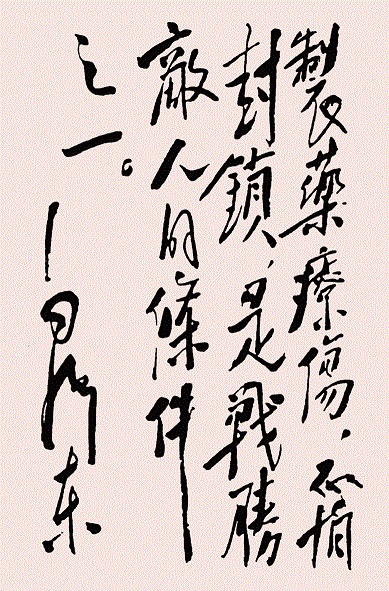 製藥療傷，不怕
封鎖，是戰勝
敵人的條件
之一。
— 毛澤东